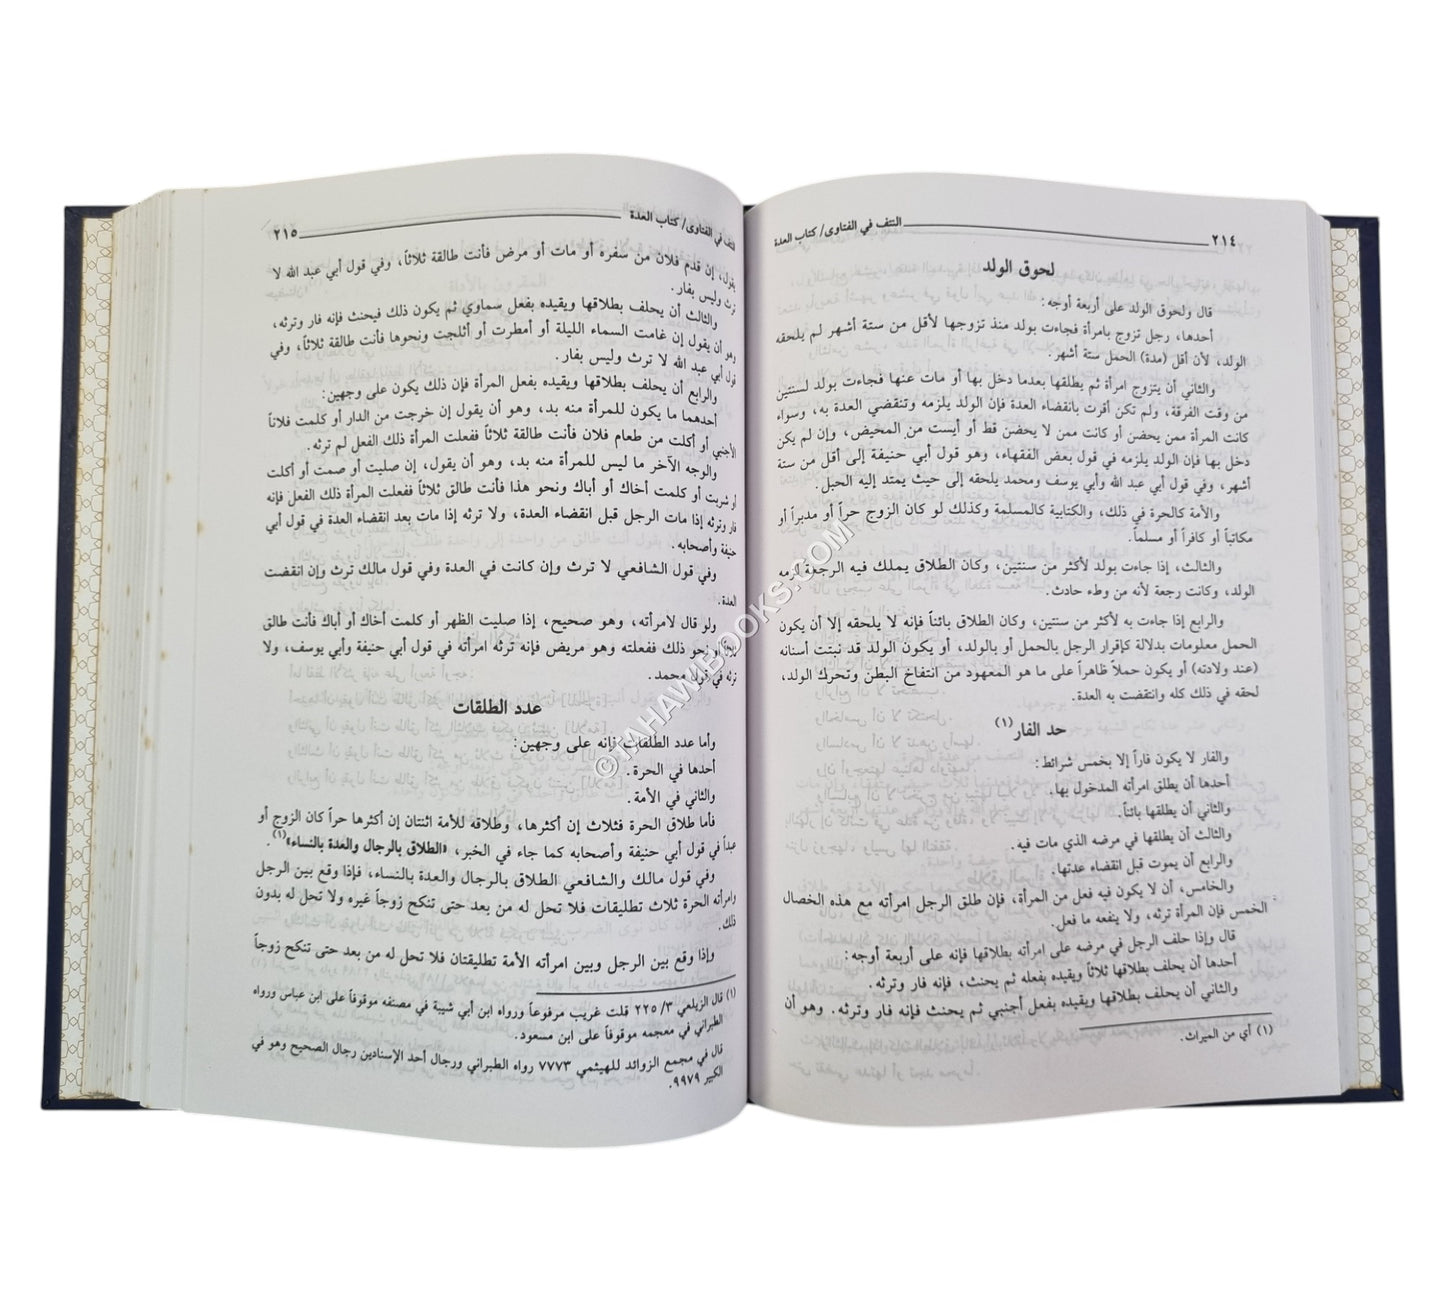 ٢١٤ النتف في الفتاوى/ كتاب العدة
لحوق الولد
قال ولحوق الولد على أربعة أوجه:
أحدها، رجل تزوج بامرأة فجاءت بولد منذ تزوجها لأقل من ستة أشهر لم يلحقه
الولد، لأن أقل (مدة) الحمل ستة أشهر.
والثاني أن يتزوج امرأة ثم يطلقها بعدما دخل بها أو مات عنها فجاءت بولد لسنتين
من وقت الفرقة، ولم تكن أقرت بانقضاء العدة فإن الولد يلزمه وتنقضي العدة به، وسواء
كانت المرأة ممن يحضن أو كانت ممن لا يحضن قط أو أيست من المحيض، وإن لم يكن
دخل بها فإن الولد يلزمه في قول بعض الفقهاء، وهو قول أبي حنيفة إلى أقل من ستة
أشهر، وفي قول أبي عبد الله وأبي يوسف ومحمد يلحقه إلى حيث يمتد إليه الحبل.
والأمة كالحرة في ذلك، والكتابية كالمسلمة وكذلك لو كان الزوج حراً أو مدبراً أو
مكاتباً أو كافراً أو مسلماً.
والثالث، إذا جاءت بولد لأكثر من سنتين، وكان الطلاق يملك فيه الرجعة لزمه
الولد، وكانت رجعة لأنه من وطء حادث.
والرابع إذا جاءت به لأكثر من سنتين، وكان الطلاق بائناً فإنه لا يلحقه إلا أن يكون
الحمل معلومات بدلالة كإقرار الرجل بالحمل أو بالولد، أو يكون الولد قد نبتت أسنانه
(عند ولادته) أو يكون حملاً ظاهراً على ما هو المعهود من انتفاخ البطن وتحرك الولد،
لحقه في ذلك كله وانتقضت به العدة.
حد الفار(١)
والفار لا يكون فاراً إلا بخمس شرائط:
أحدها أن يطلق امرأته المدخول بها.
والثاني أن يطلقها بائناً.
والثالث أن يطلقها في مرضه الذي مات فيه.
والرابع أن يموت قبل انقضاء عدتها.
والخامس، أن لا يكون فيه فعل من المرأة، فإن طلق الرجل امرأته مع هذه الخصال
الخمس فإن المرأة ترثه، ولا ينفعه ما فعل.
قال وإذا حلف الرجل في مرضه على امرأته بطلاقها فإنه على أربعة أوجه:
أحدها أن يحلف بطلاقها ثلاثاً ويقيده بفعله ثم يحنث، فإنه فار وترثه.
والثاني أن يحلف بطلاقها ويقيده بفعل أجنبي ثم يحنث فإنه فار وترثه. وهو أن
(١) أي من الميراث.
النتف في الفتاوى/ كتاب العدة ٢١٥
يقول، إن قدم فلان من سفره أو مات أو مرض فأنت طالقة ثلاثاً، وفي قول أبي عبد الله لا
ترث وليس بفار.
والثالث أن يحلف بطلاقها ويقيده بفعل سماوي ثم يكون ذلك فيحنث فإنه فار وترثه،
وهو أن يقول إن غامت السماء الليلة أو أمطرت أو أثلجت ونحوها فأنت طالقة ثلاثاً، وفي
قول أبي عبد الله لا ترث وليس بفار.
والرابع أن يحلف بطلاقها ويقيده بفعل المرأة فإن ذلك يكون على وجهين:
أحدهما ما يكون للمرأة منه بد، وهو أن يقول إن خرجت من الدار أو كلمت فلاناً
الأجنبي أو أكلت من طعام فلان فأنت طالقة ثلاثاً ففعلت المرأة ذلك الفعل لم ترثه.
والوجه الآخر ما ليس للمرأة منه بد، وهو أن يقول، إن صليت أو صمت أو أكلت
أو شربت أو كلمت أخاك أو أباك ونحو هذا فأنت طالق ثلاثاً ففعلت المرأة ذلك الفعل فإنه
فار وترثه إذا مات الرجل قبل انقضاء العدة، ولا ترثه إذا مات بعد انقضاء العدة في قول أبي
حنيفة وأصحابه.
وفي قول الشافعي لا ترث وإن كانت في العدة وفي قول مالك ترث وإن انقضت
العدة.
ولو قال لامرأته، وهو صحيح، إذا صليت الظهر أو كلمت أخاك أو أباك فأنت طالق
ثلاثاً أو نحو ذلك ففعلته وهو مريض فإنه ترثه امرأته في قول أبي حنيفة وأبي يوسف، ولا
ترثه في قول محمد.
عدد الطلقات
وأما عدد الطلقات فإنه على وجهين:
أحدها في الحرة.
والثاني في الأمة.
فأما طلاق الحرة فثلاث إن أكثرها، وطلاقه للأمة اثنتان إن أكثرها حراً كان الزوج أو
عبداً في قول أبي حنيفة وأصحابه كما جاء في الخبر، «الطلاق بالرجال والعدة بالنساء»(١).
وفي قول مالك والشافعي الطلاق بالرجال والعدة بالنساء، فإذا وقع بين الرجل
وامرأته الحرة ثلاث تطليقات فلا تحل له من بعد حتى تنكح زوجاً غيره ولا تحل له بدون
ذلك.
وإذا وقع بين الرجل وبين امرأته الأمة تطليقتان فلا تحل له من بعد حتى تنكح زوجاً
(١) قال الزيلعي ٣/ ٢٢٥ قلت غريب مرفوعاً ورواه ابن أبي شيبة في مصنفه موقوفاً على ابن عباس ورواه
الطبراني في معجمه موقوفاً على ابن مسعود.
قال في مجمع الزوائد للهيثمي ٧٧٧٣ رواه الطبراني ورجال أحد الإسنادين رجال الصحيح وهو في
الكبير ٩٦٧٩.
©TAHAWIBOOKS.COM